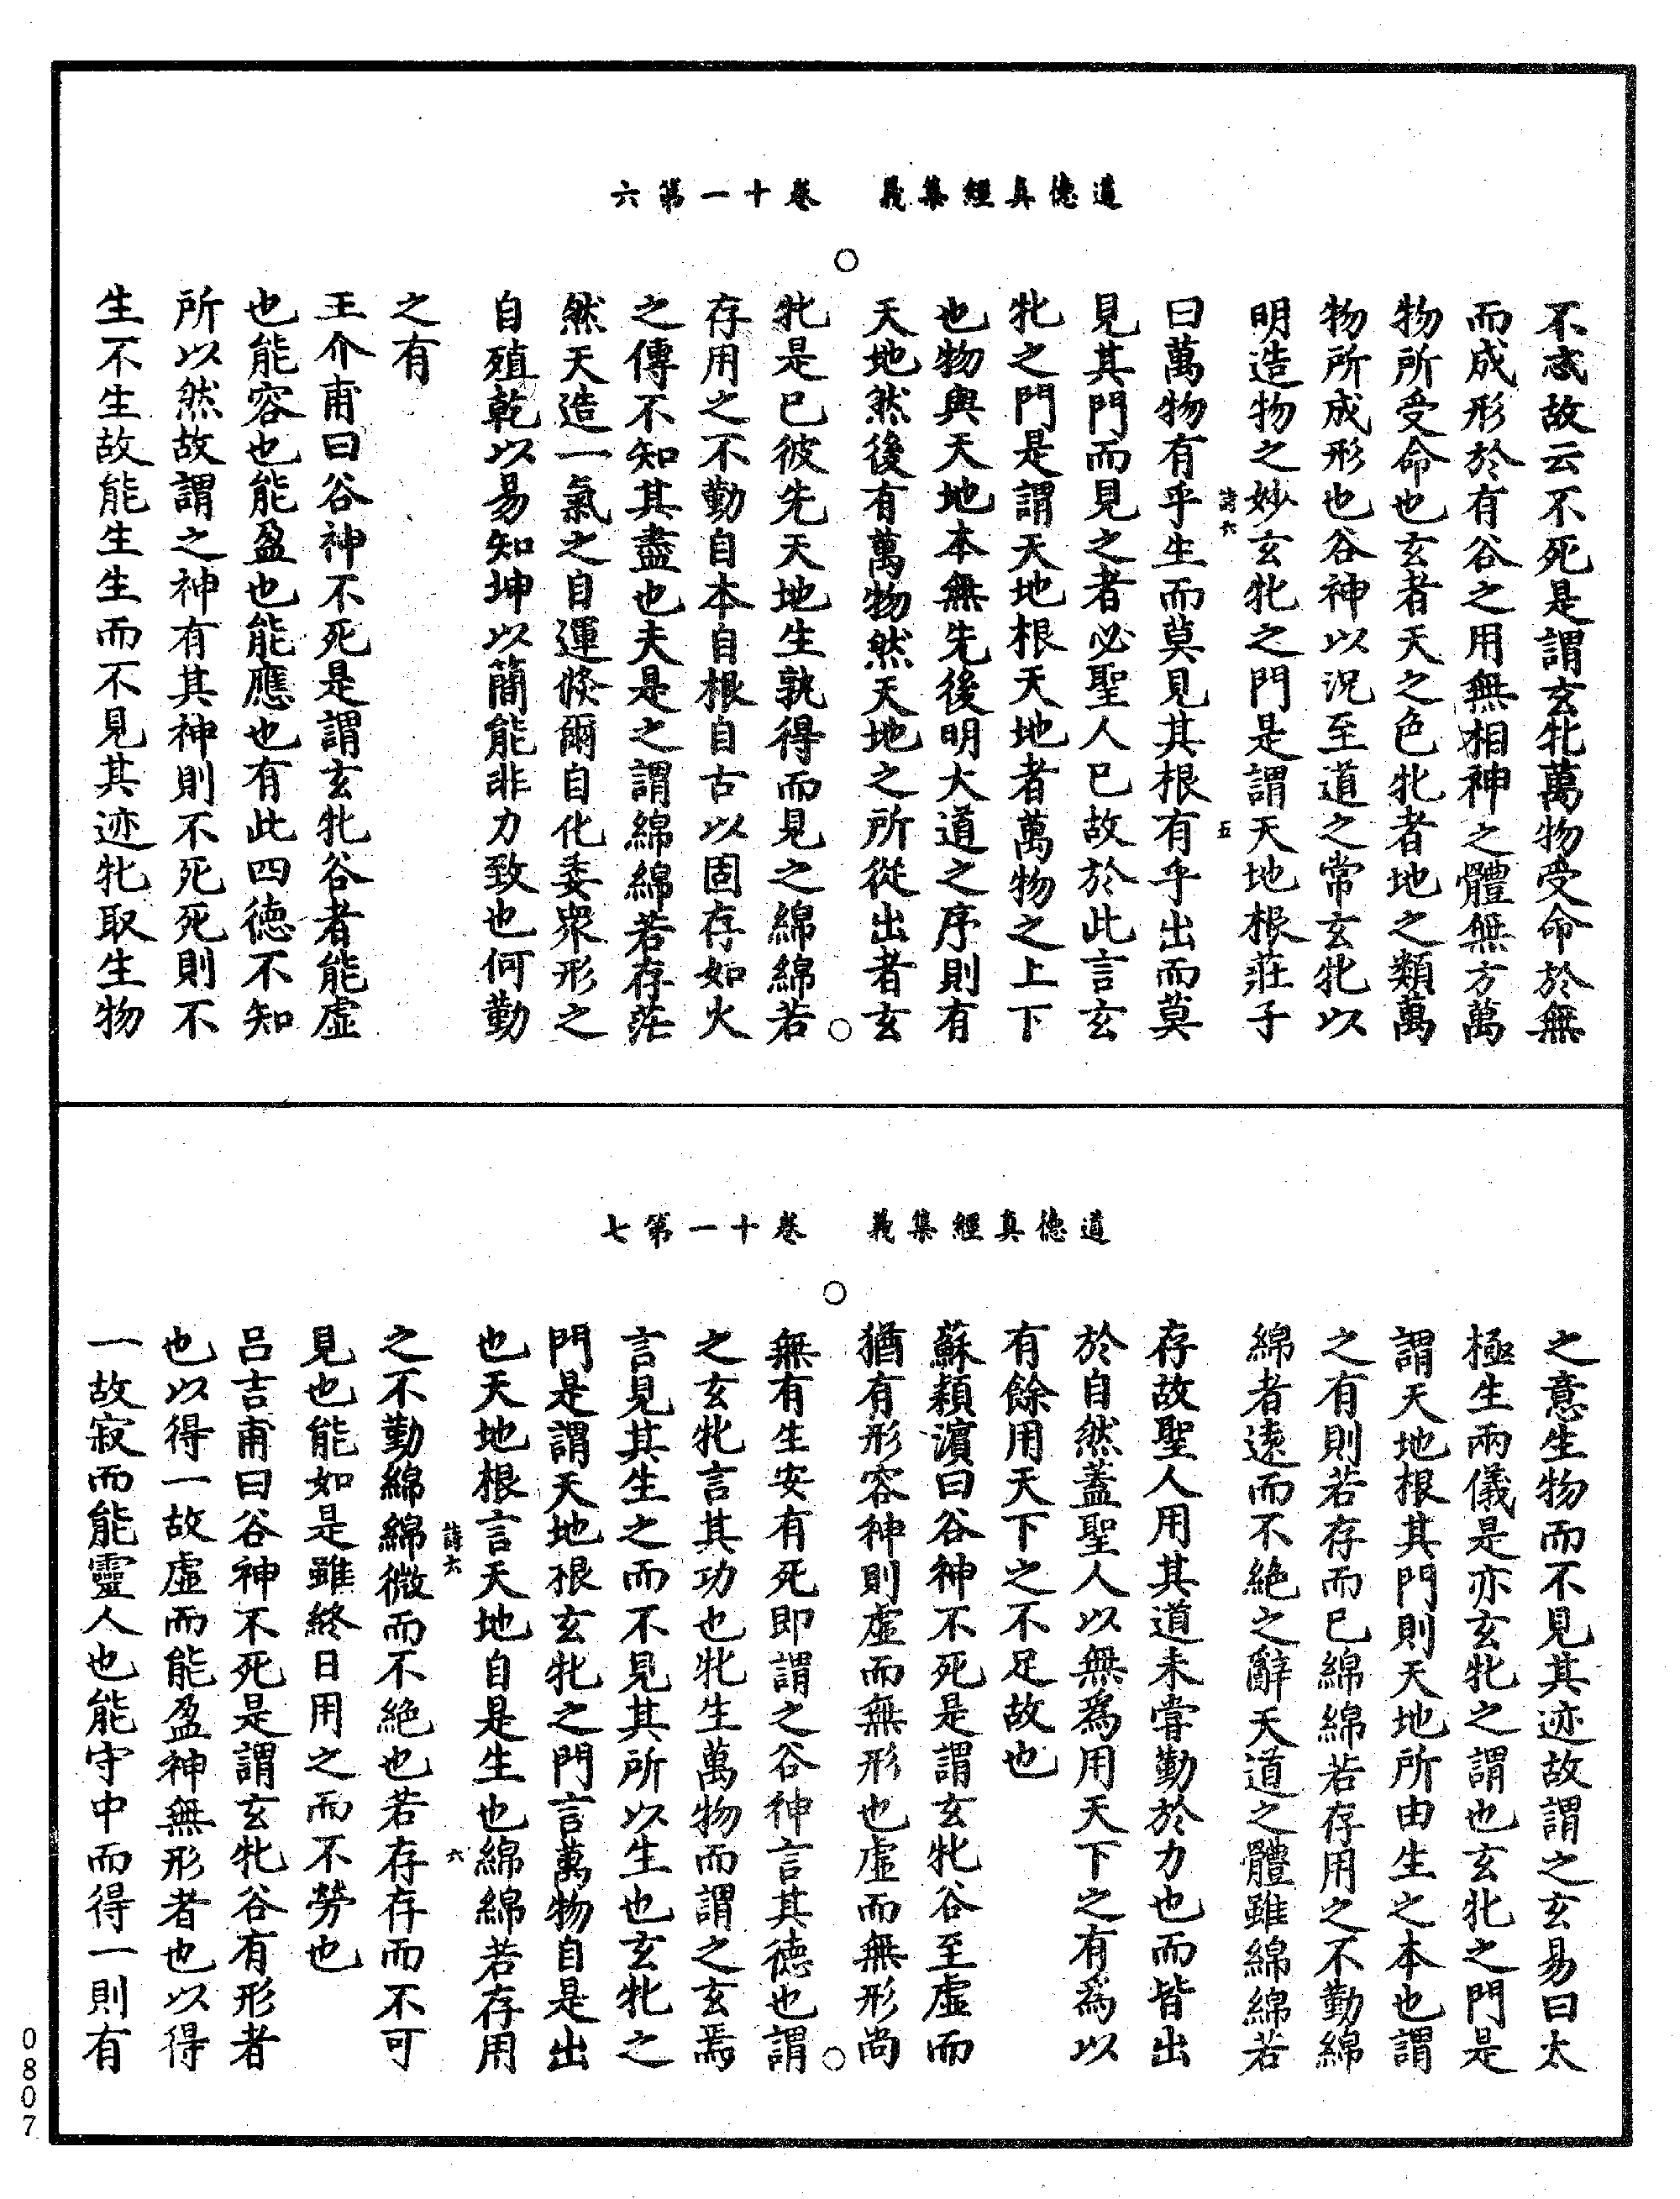 道德真經集義　卷十一第六
不忒故云不死是謂玄牝萬物受命於無
而成形於有谷之用無相神之體無方萬
物所受命也玄者天之色牝者地之類萬
物所成形也谷神以況至道之常玄牝以
明造物之妙玄牝之門是謂天地根莊子
詩六　五
曰萬物有乎生而莫見其根有乎出而莫
見其門而見之者必聖人已故於此言玄
牝之門是謂天地根天地者萬物之上下
也物與天地本無先後明大道之序則有
天地然後有萬物然天地之所從出者玄
牝是已彼先天地生孰得而見之綿綿若
存用之不勤自本自根自古以固存如火
之傳不知其盡也夫是之謂綿綿若存茫
然天造一氣之自運倏爾自化委衆形之
自殖乾以易知坤以簡能非力致也何勤
之有
王介甫曰谷神不死是謂玄牝谷者能虛
也能容也能盈也能應也有此四德不知
所以然故謂之神有其神則不死死則不
生不生故能生生而不見其迹牝取生物
道德真經集義　卷十一第七
之意生物而不見其迹故謂之玄易曰太
極生兩儀是亦玄牝之謂也玄牝之門是
謂天地根其門則天地所由生之本也謂
之有則若存而已綿綿若存用之不勤綿
綿者遠而不絶之辭天道之體雖綿綿若
存故聖人用其道未嘗勤於力也而皆出
於自然蓋聖人以無爲用天下之有爲以
有餘用天下之不足故也
蘇頴濵曰谷神不死是謂玄牝谷至虛而
猶有形容神則虛而無形也虛而無形尚
無有生安有死即謂之谷神言其德也謂
之玄牝言其功也牝生萬物而謂之玄焉
言見其生之而不見其所以生也玄牝之
門是謂天地根玄牝之門言萬物自是出
也天地根言天地自是生也綿綿若存用
詩六　六
之不勤綿綿微而不絶也若存存而不可
見也能如是雖終日用之而不勞也
呂吉甫曰谷神不死是謂玄牝谷有形者
也以得一故虛而能盈神無形者也以得
一故寂而能靈人也能守中而得一則有
0807